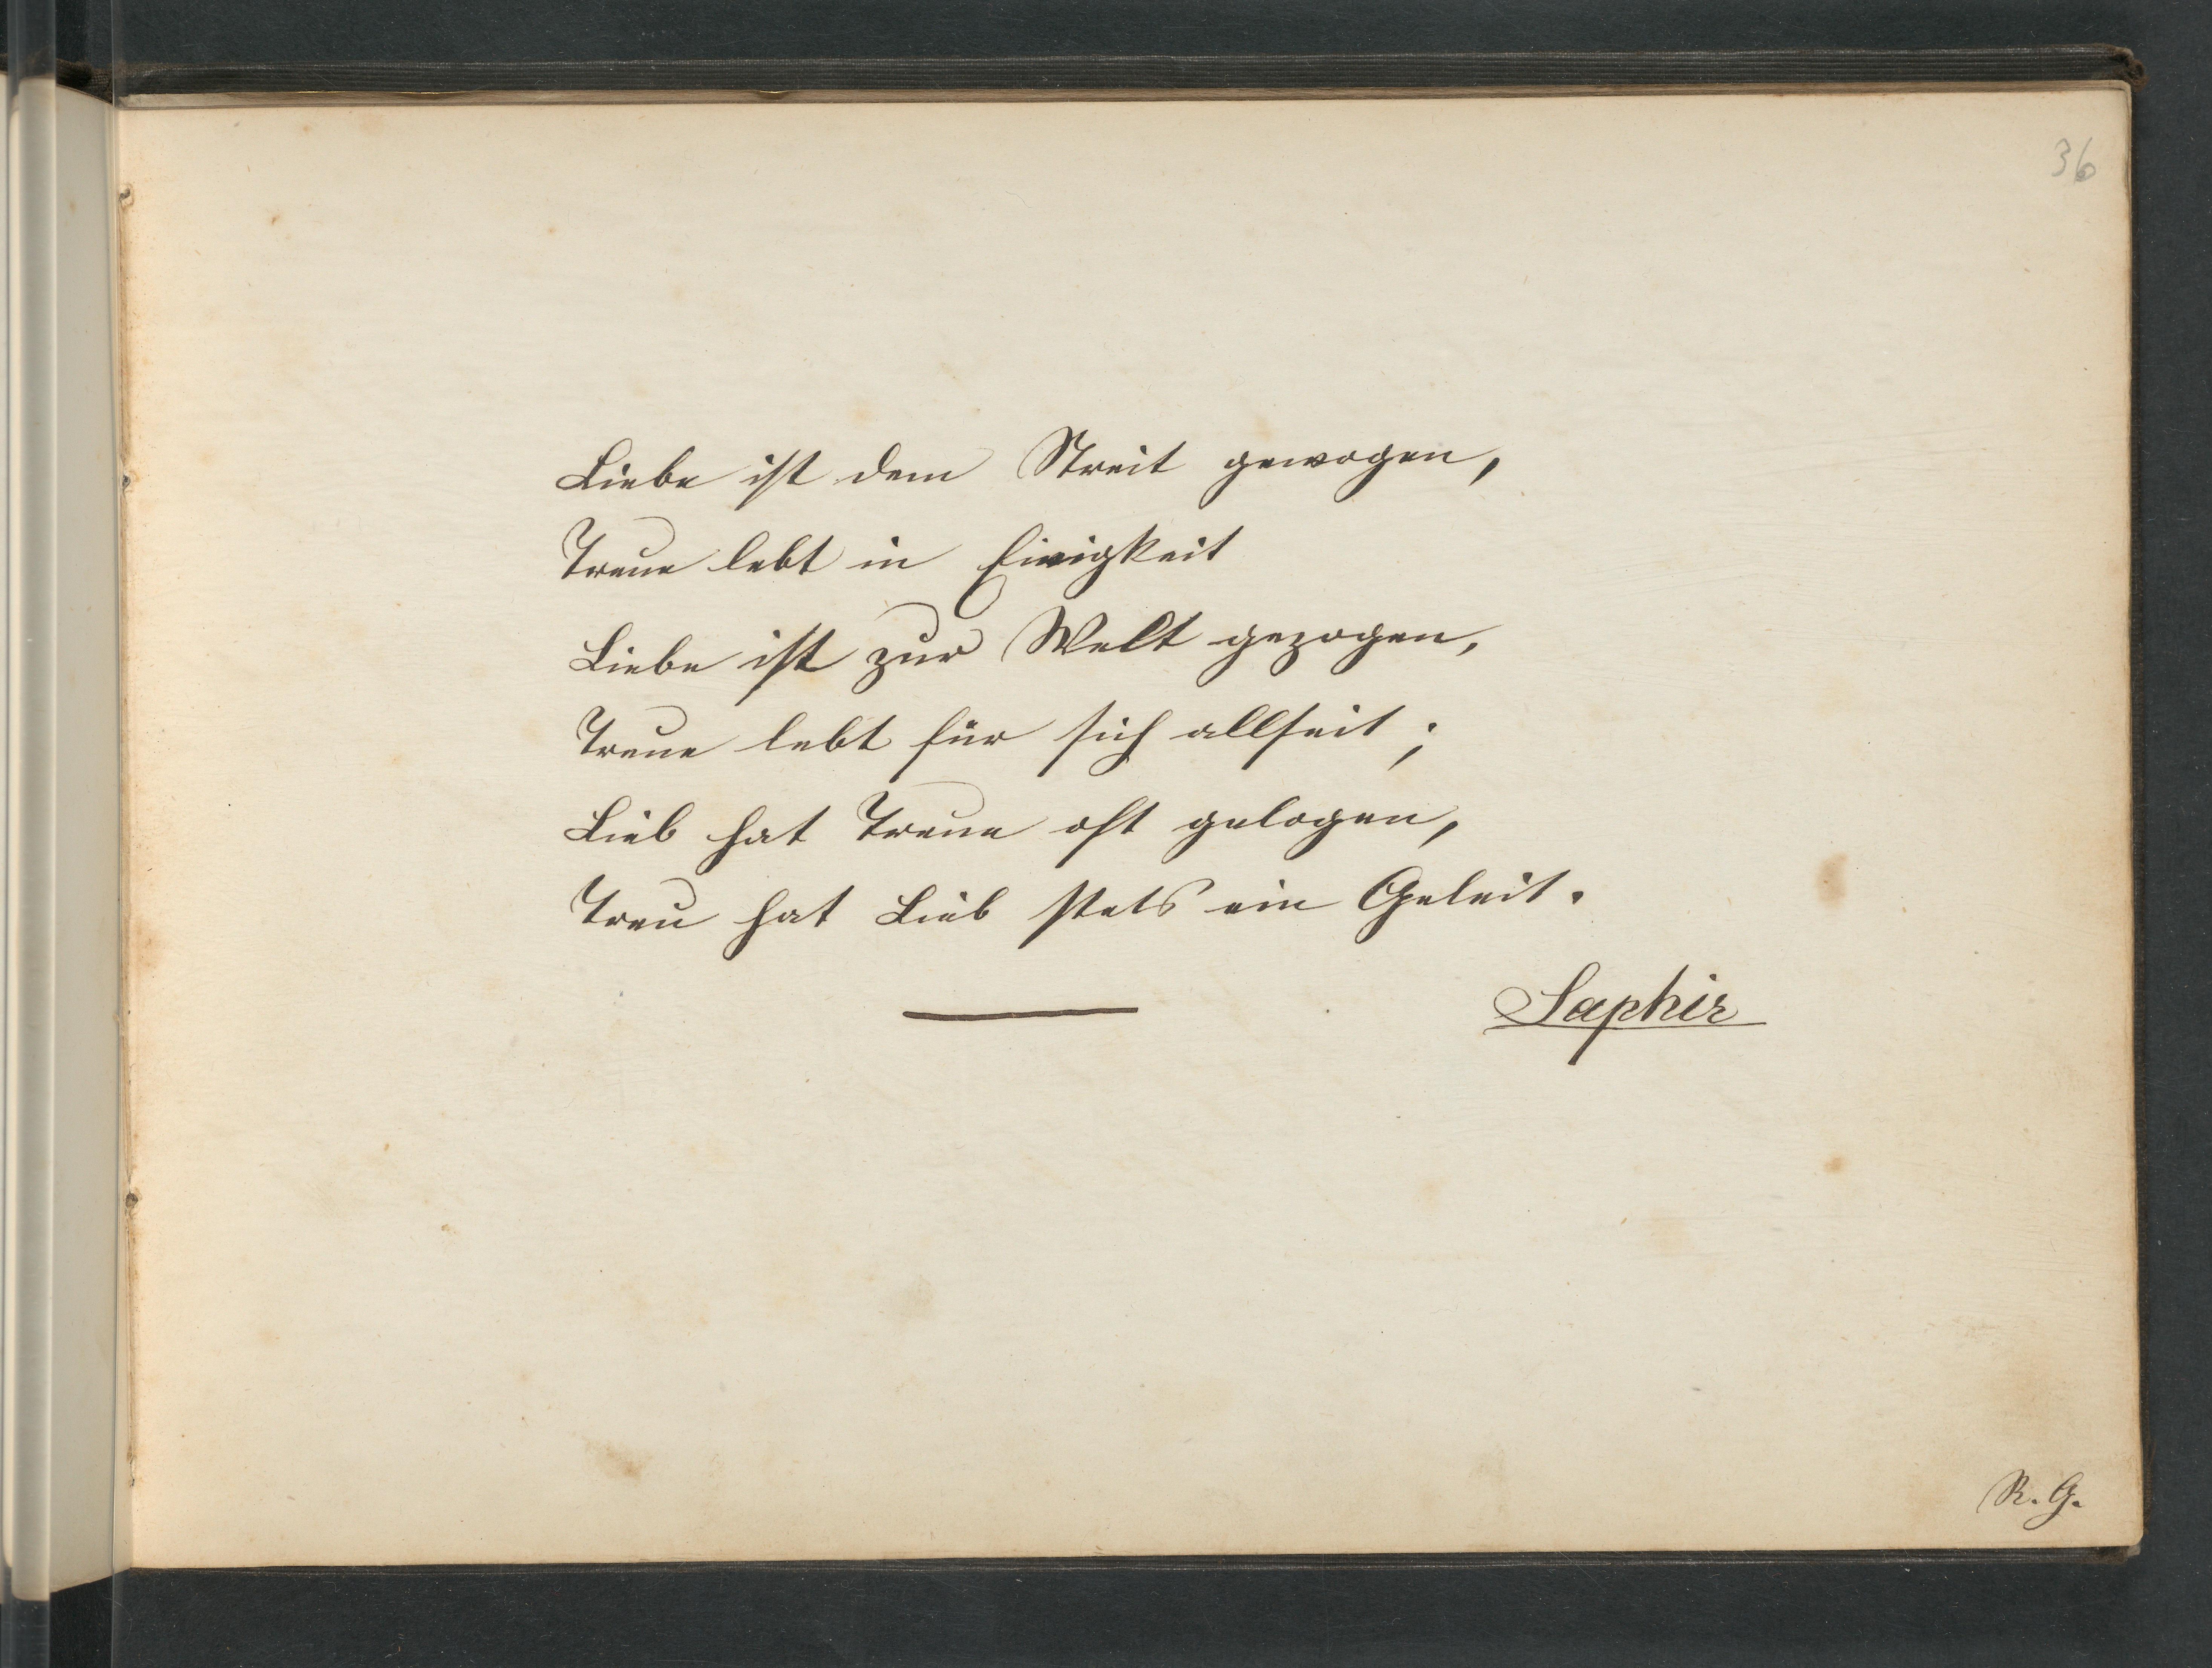 36
Liebe ist dem Streit gewogen,
Treue lebt in Einigkeit
Liebe ist zur Welt gezogen,
Treue lebt für sich allseit;
Lieb hat Treue oft gelogen,
Treu hat Lieb stets ein Geleit.
Saphir
R. G.